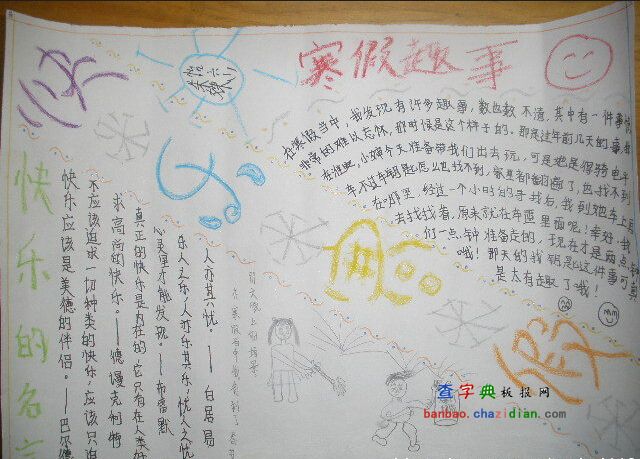 寒假趣事
在寒假当中，我发现有许多趣事，数也数不清，其中有一件事情
非常的难以忘怀，那时候是这个样子的。那是过年前几天的事，我
在谁吃，小姨今天准备带我们出去玩，可是她是得骑电平
车，不过车钥匙怎么也找不到，家里都翻遍了，也找不到
在哪里，经过一个小时的寻找后，我到她车上
去找找看，原来就在车蓝里面呢！幸好，我
们一点钟准备走的，现在才是两点
哦！那天的找钥是匙这件事可真
是太有趣了哦！
快乐的名言
快乐应该是美德的伴侣。——巴尔德
不应该追求一切种类的快乐，应该只追
求高尚的快乐。——德谟克利特
真正的快乐是内在的，它只有在人类的
心灵里才能发现。——布雷默
乐人之乐，人亦乐其乐；忧人之忧
人亦其忧。——白居易
快
乐
假
查字典板报网
banbao.chazidian.com